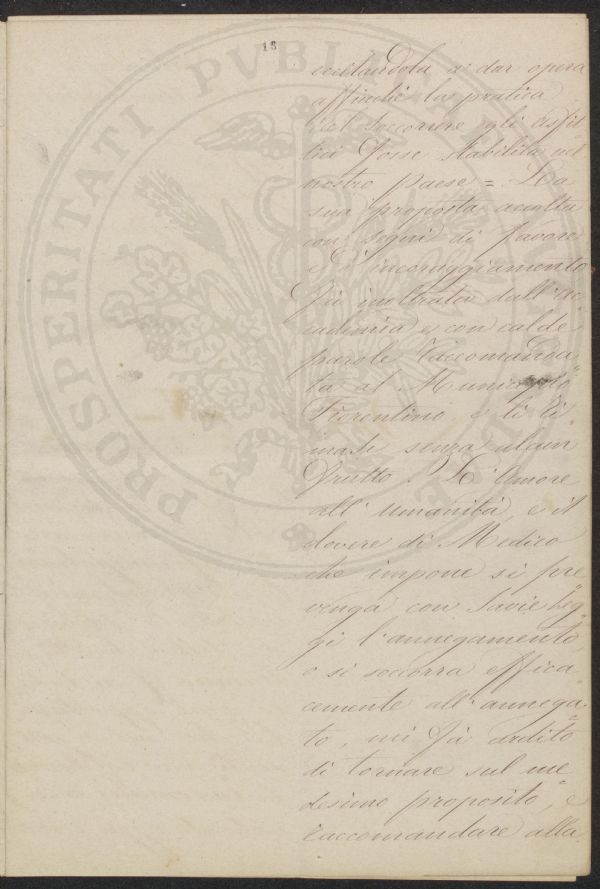 15
eccitandola a dar opera
affinchè la pratica
del soccorrere gli asfit=
tici fosse stabilita nel
nostro paese = La
sua proposta accolta
con segni di favore
e d'incoraggiamento
fu inoltrata dall'ac
cademia e con calde
parole raccomanda=
ta al Municipio
Fiorentino, e lì ri
mase senza alcun
frutto. L'Amore
all'umanità, e il
dovere di Medico
che impone si pre
venga con savie leg=
gi l'annegamento,
o si soccorra effica
cemente all'annega=
to, mi fa ardito
di tornare sul me
desimo proposito, e
raccomandare alla
PROSPERITATI PVBLICAE